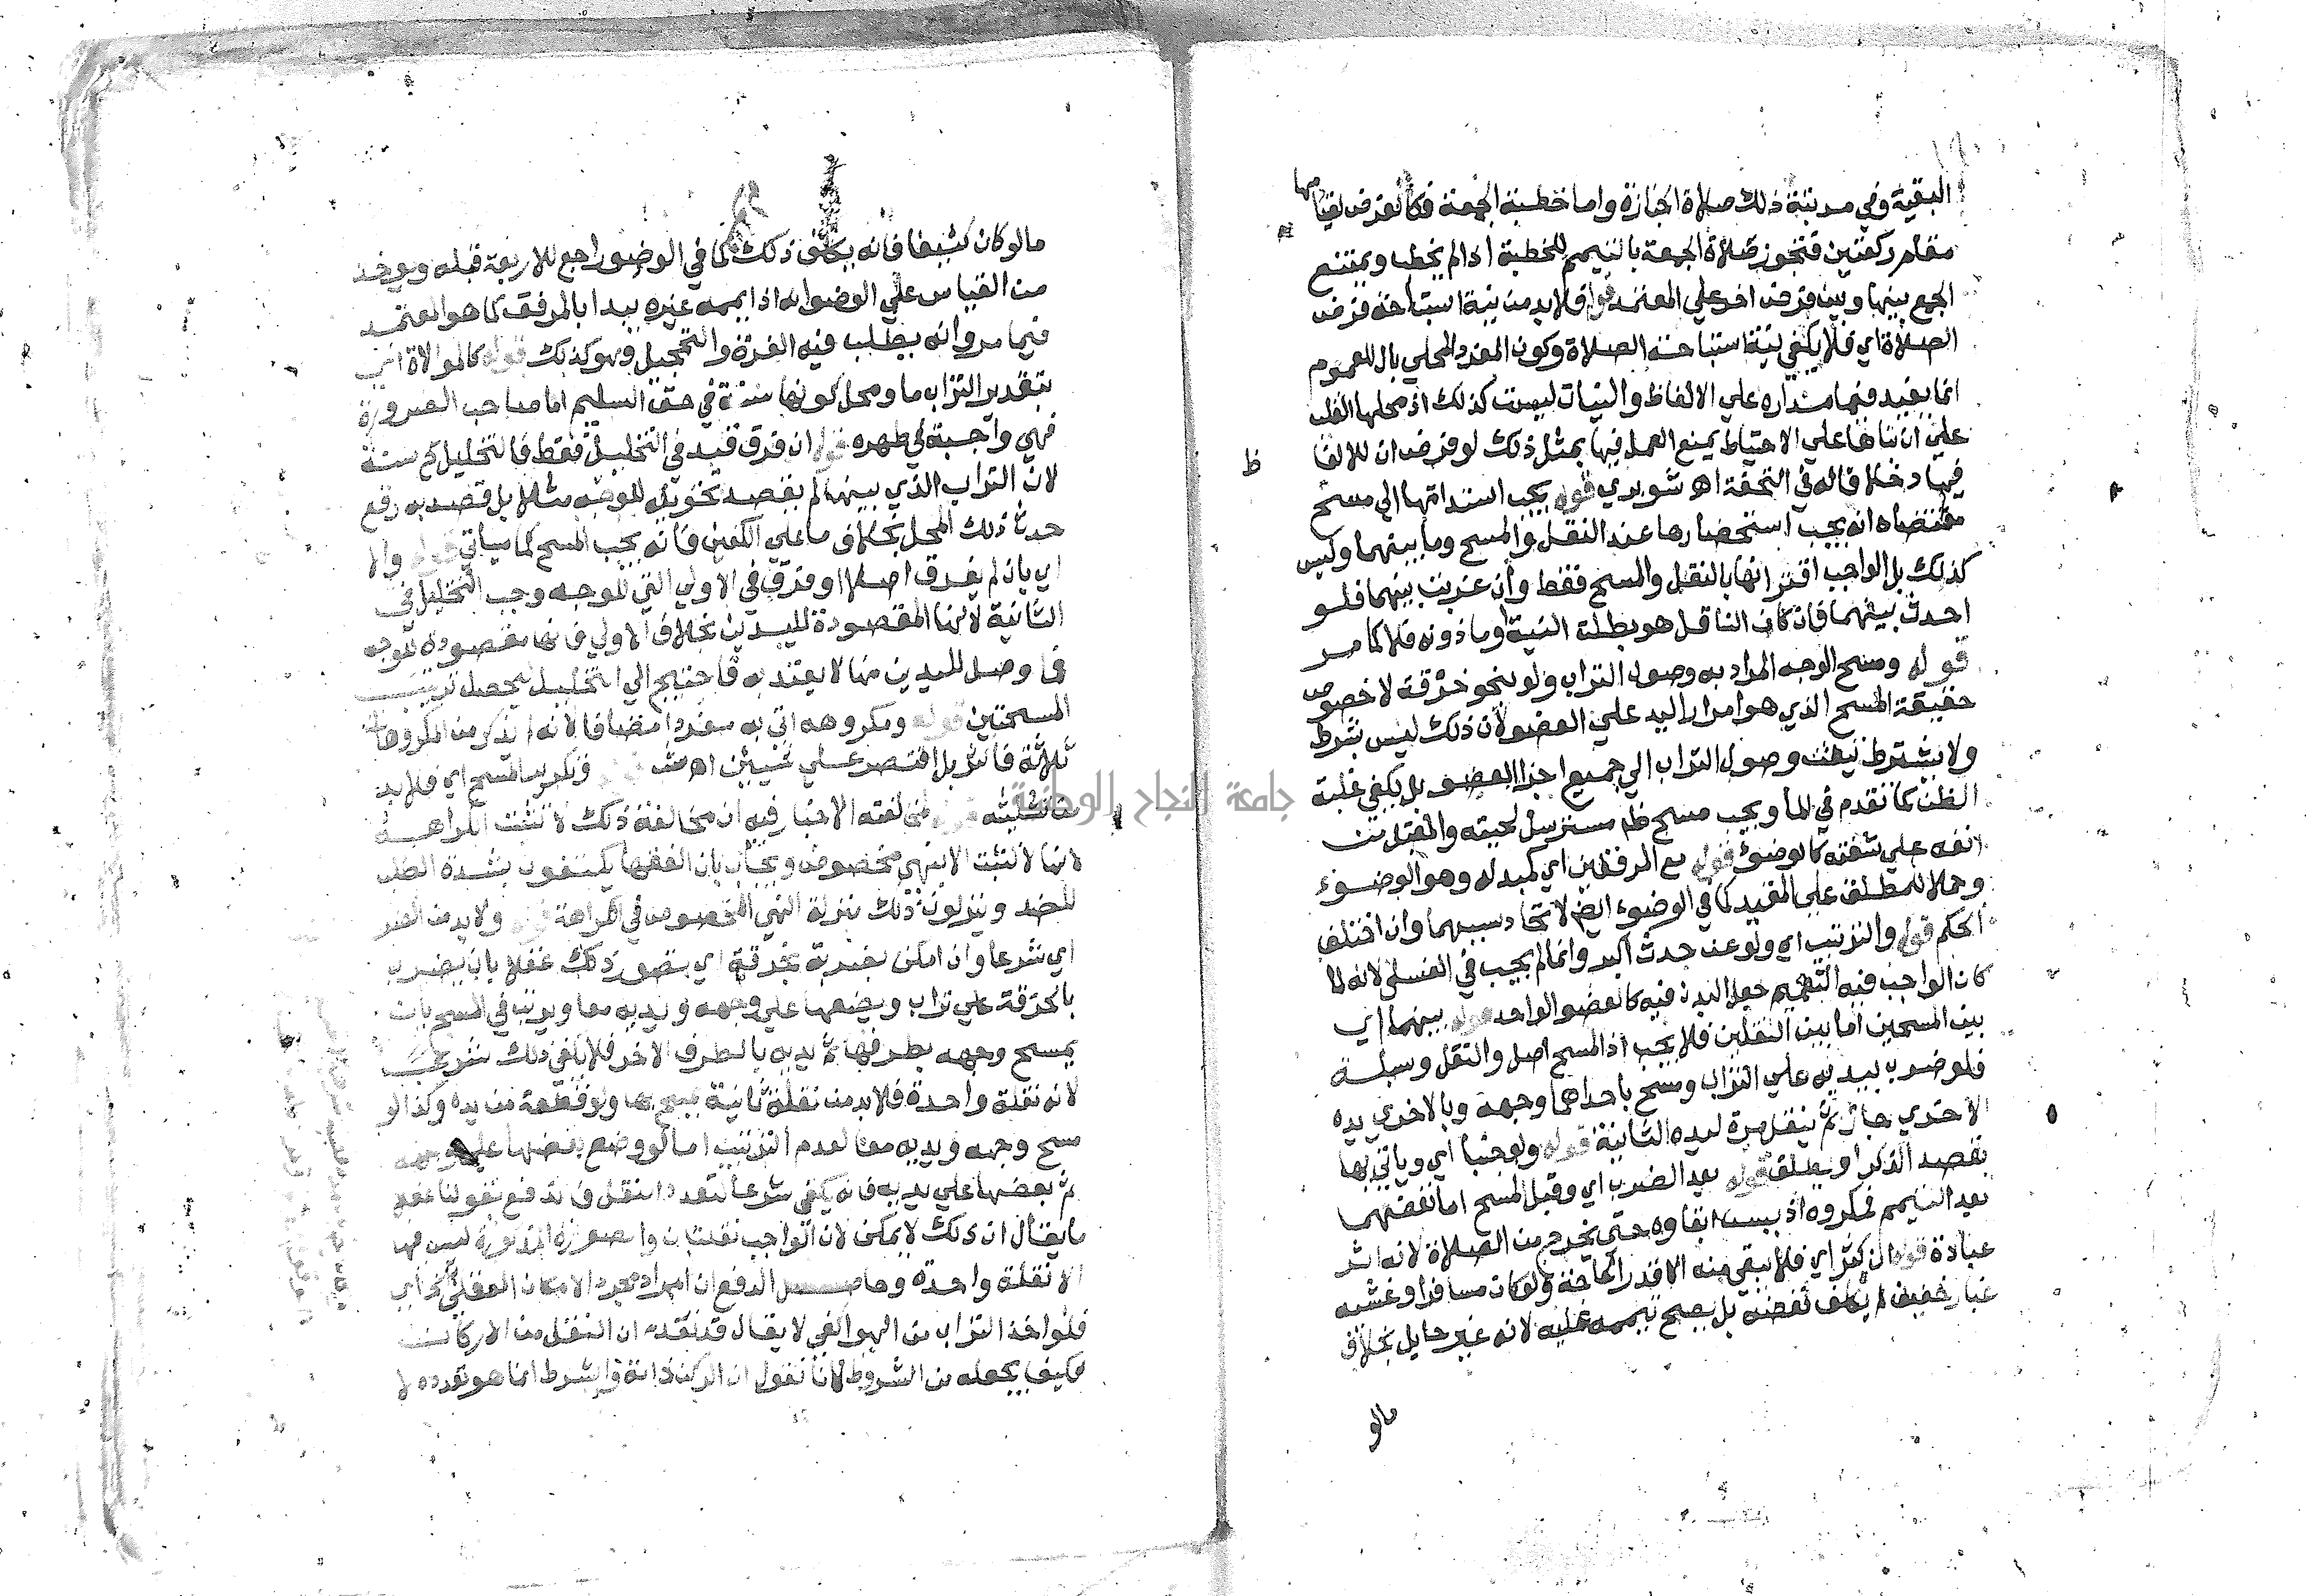 البقية وفي مرتبة ذلك صلاة الجنازة واما خطبة الجمعة فكالفرض لقيامها
مقام ركعتين فتجوز صلاة الجمعة بالتيمم للخطبة اذا لم يخطب ويمتنع
الجمع بينها وبين فرض اخر علي المعتمد قوله فلا بد من نية استباحة فرض
الصلاة اي فلا يكفي نية استباحة الصلاة وكون المفرد المحلي بال للعموم
انما يفيد فيما مداره علي الالفاظ والنيات ليست كذلك اذ محلها القلب
علي ان بناها علي الاحتياط يمنع العمل فيها بمثل ذلك لو فرض ان للالفا
فيها دخلا قاله في التحفة اهـ شوبري قوله يجب استدامتها الي مسح
مقتضاه انه يجب استحضارها عند النقل والمسح وما بينهما وليس
كذلك بل الواجب اقترانها بالنقل والمسح فقط وان عزبت بينهما فلو
احدث بينهما فان كان الناقل هو بطلت النية او ماذونه فلا كما مر
قوله ومسح الوجه المراد به وصول التراب ولو بنحو خرقة لا خصوص
حقيقة المسح الذي هو امرار اليد علي العضو لان ذلك ليس بشرط
ولا يشترط تيقن وصول التراب الي جميع اجزا العضو بل يكفي غلبة
الظن كما تقدم في الما ويجب مسح ظاهر مسترسل لحيته والمقبل من
انفه علي شفته كالوضوء قوله مع المرفقين اي كمبدله وهو الوضوء
وحملا للمطلق علي المقيد كما في الوضوء ايضا لاتحاد سببهما وان اختلف
الحكم قوله والترتيب اي ولو عن حدث اكبر وانما لم يجب في الغسل لانه لما
كان الواجب فيه التعميم جعل البدن فيه كالعضو الواحد قوله بينهما اي
بين المسحين اما بين النقلين فلا يجب اذ المسح اصل والنقل وسيلة
فلو ضرب بيديه علي التراب ومسح باحداهما وجهه وبالاخري يده
الاخري جاز ثم ينقل مرة ليده الثانية قوله ولو جنبا اي وياتي بها
بقصد الذكر او يطلق قوله بعد الضرب اي وقبل المسح اما نفضهما
بعد التيمم فمكروه اذ يسن ابقاوه حتي يخرج من الصلاة لانه اثر
عبادة قوله ان كثر اي فلا يبقي منه الا قدر الحاجة ولو كان مسافرا وغشيه
غبار خفيف لم يكلف نفضه بل يصح تيممه عليه لانه غير حايل بخلاف
مالو
مالو كان كثيفا فانه يكلف ذلك كما في الوضوء راجع للاربعة قبله ويوخذ
من القياس علي الوضوء انه اذا يممه غيره يبدا بالمرفق كما هو المعتمد
فيما مر وانه يطلب فيه الغرة والتحجيل وهو كذلك قوله كالموالاة اي
بتقدير التراب ما ومحل كونها سنة في حق السليم اما صاحب الضرورة
فهي واجبة في طهره قوله ان فرق قيد في التخليل فقط فالتخليل ح سنة
لان التراب الذي بينها لم يقصد تحويله للوجه مثلا بل قصد به رفع
حدث ذلك المحل بخلاف ما علي الكفين فانه يجب المسح كما سياتي قوله والا
اي بان لم يفرق اصلا او فرق في الاولي التي للوجه وجب التخليل في
الثانية لانها المقصودة لليدين بخلاف الاولي فانها مقصودة للوجه
فما وصل لليدين منها لا يعتد به فاحتيج الي التخليل ليحصل ترتيب
المسحتين قوله ومكروهه اتي به مفردا مضافا لانه لم يذكر من المكروهات
ثلاثة فاكثر بل اقتصر علي شيئين اهـ قوله وتكرير المسح اي فلا يسن
تثليثه قوله لمخالفته الاخبار فيه ان مخالفة ذلك لا تثبت الكراهة
لانها لا تثبت الا بنهي مخصوص ويجاب بان الفقها يكتفون بشدة الطلب
للضد وينزلون ذلك منزلة النهي المخصوص في الكراهة قوله ولا بد من الضرب
اي شرعا وان امكن بضربة بخرقة اي يتصور ذلك عقلا بان يضرب
بالخرقة علي تراب ويضعها علي وجهه ويديه معا ويرتب في المسح بان
يمسح وجهه بطرفها ثم يديه بالطرف الاخر فلا يكفي ذلك شرعا
لانه نقلة واحدة فلا بد من نقلة ثانية يمسح بها ولو قطعة من يده وكذا لو
مسح وجهه ويديه معا لعدم الترتيب اما لو وضع بعضها علي وجهه
ثم بعضها علي يديه فانه يكفي شرعا لتعدد النقل فاندفع بقولنا عقلا
ما يقال ان ذلك لا يمكن لان الواجب نقلتان والصورة المذكورة ليس فيها
الا نقلة واحدة وحاصل الدفع ان المراد مجرد الامكان العقلي
فلو اخذ التراب من الهوا كفي لا يقال قد تقدم ان النقل من الاركان
فكيف يجعله من الشروط لانا نقول ان الركن ذاته والشرط انما هو تعدده لا